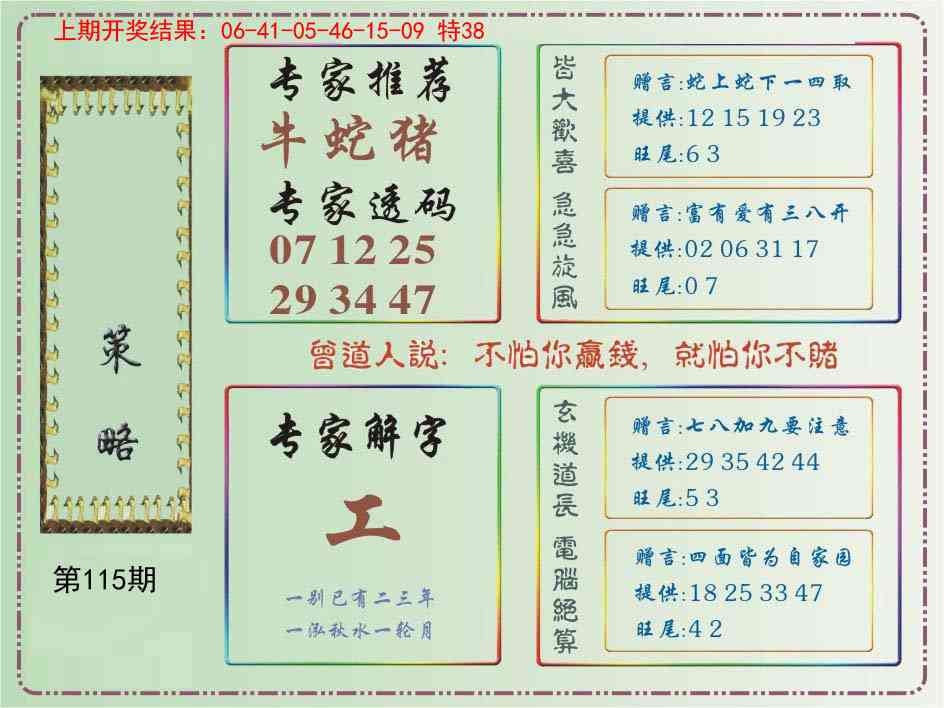 上期开奖结果：06-41-05-46-15-09 特38
策略
第115期
专家推荐
牛蛇猪
专家透码
07 12 25
29 34 47
皆大歡喜
赠言:蛇上蛇下一四取
提供:12 15 19 23
旺尾:6 3
急急旋風
赠言:富有爱有三八开
提供:02 06 31 17
旺尾:0 7
曾道人説：不怕你贏錢，就怕你不賭
专家解字
工
一别已有二三年
一泓秋水一轮月
玄機道長
赠言:七八加九要注意
提供:29 35 42 44
旺尾:5 3
電腦絕算
赠言:四面皆为自家园
提供:18 25 33 47
旺尾:4 2